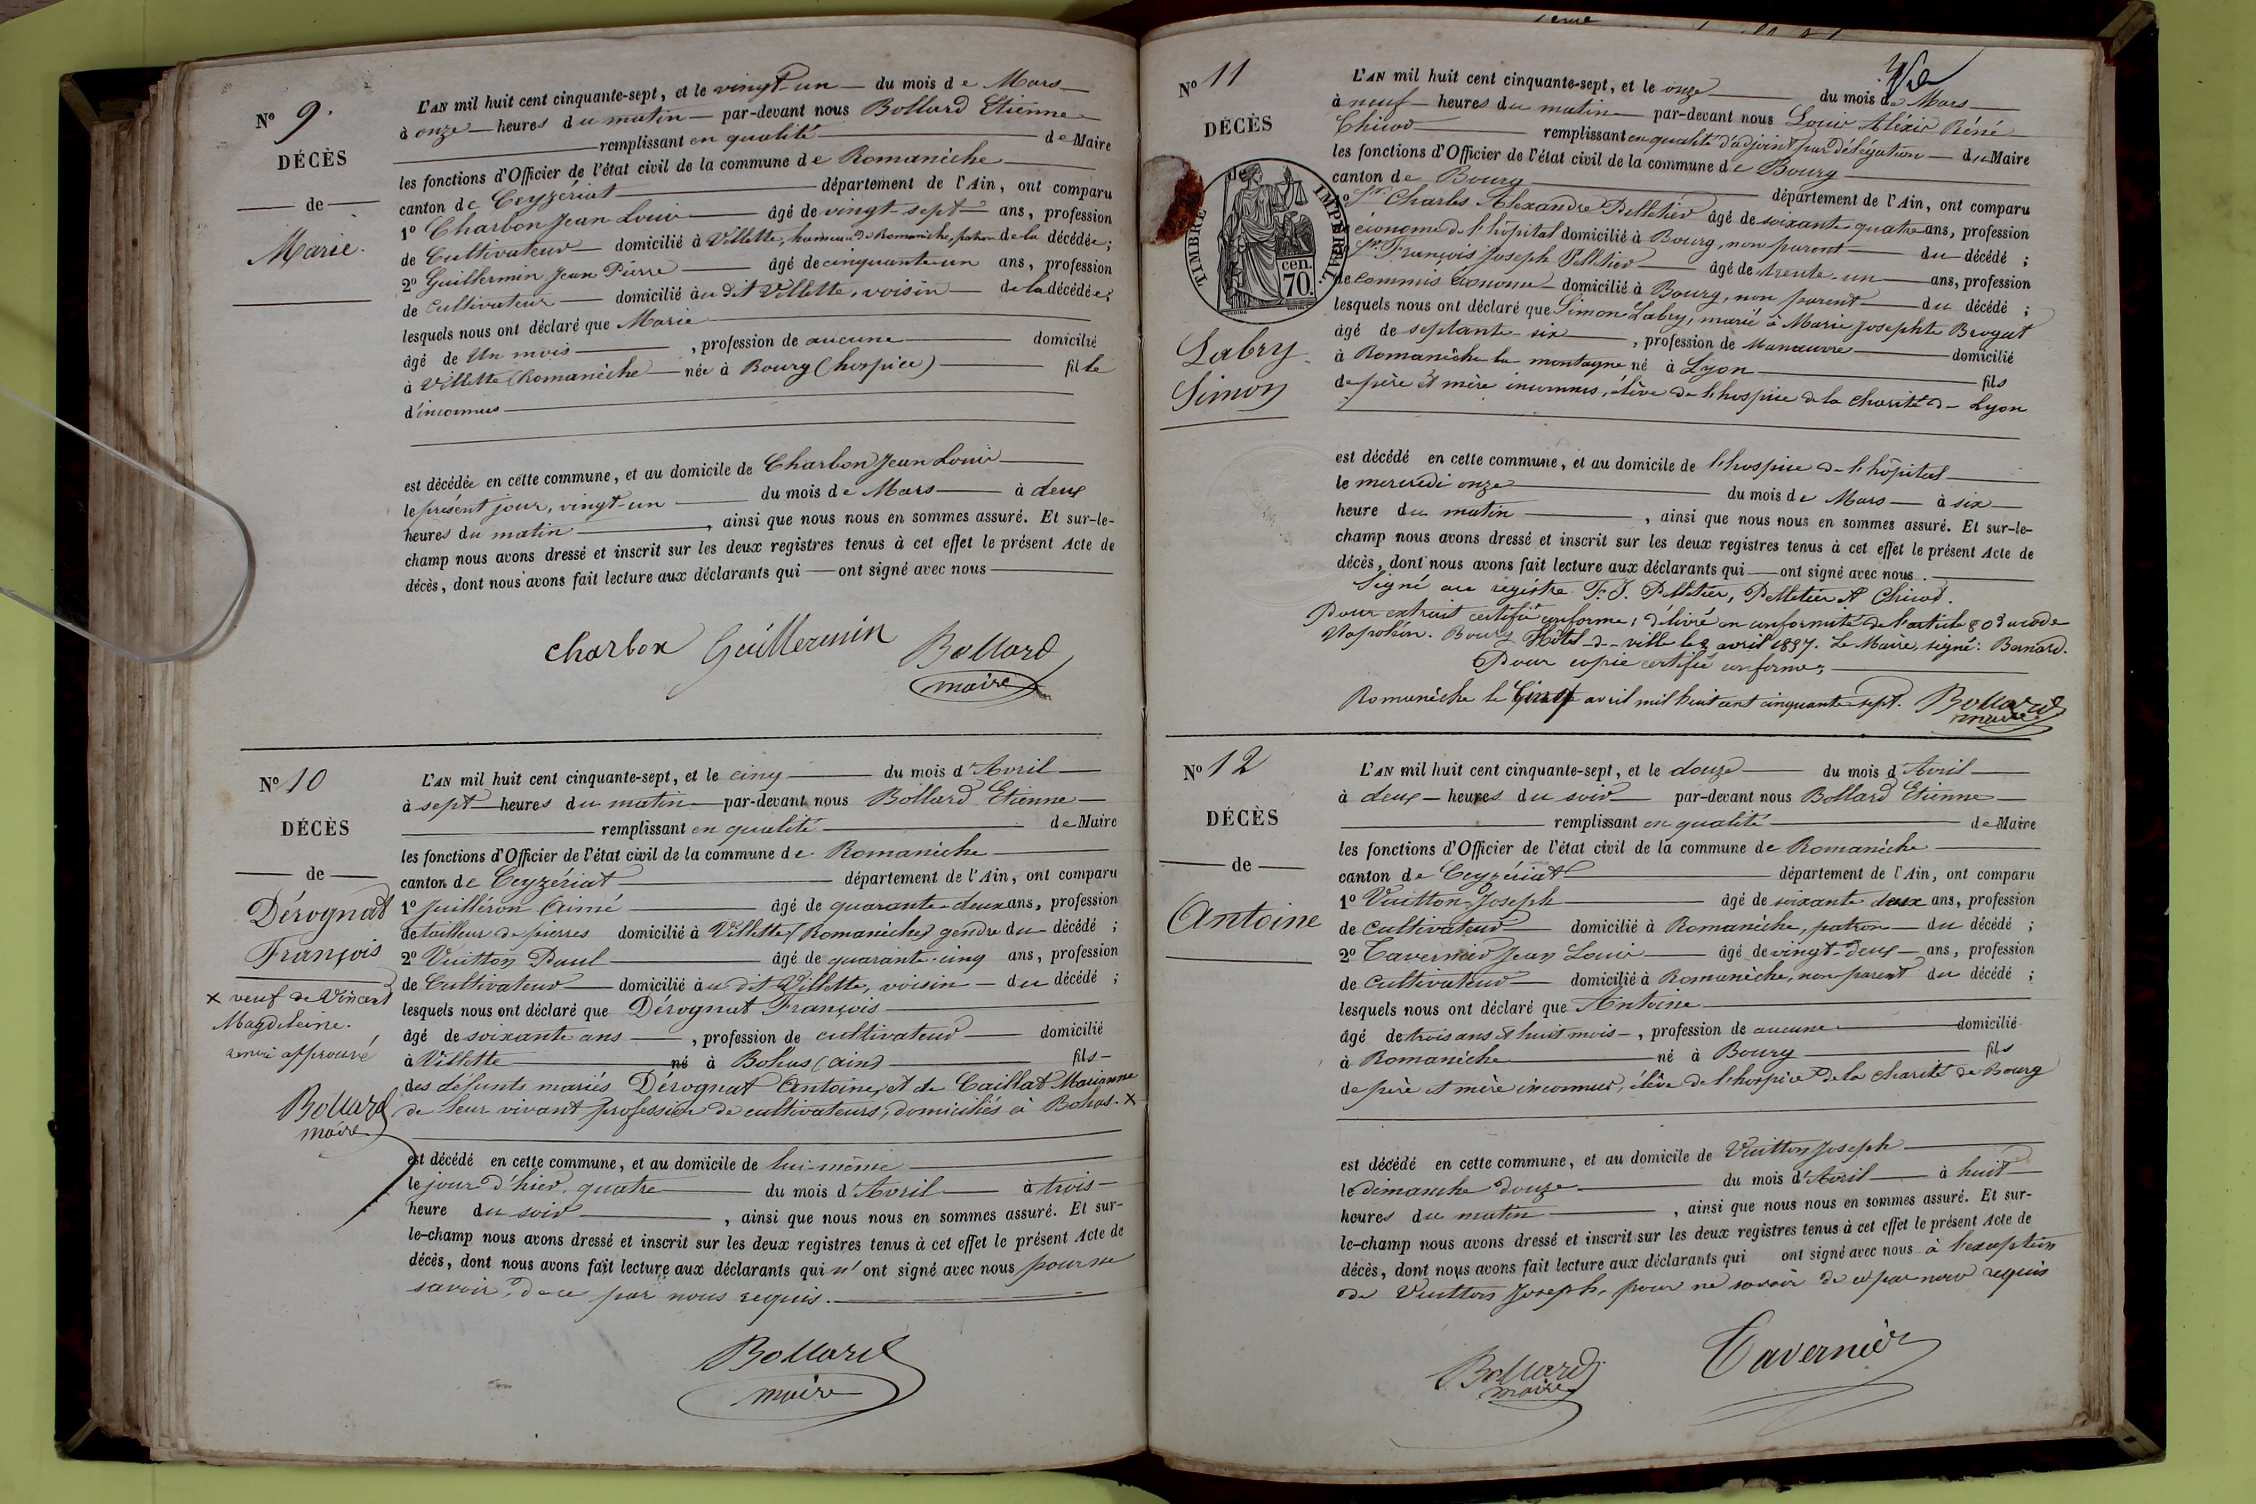 No 9.
DÉCÈS
de
Marie.
L'AN mil huit cent cinquante-sept, et le vingt un du mois de Mars
à onze heures du matin par-devant nous Bollard Etienne
remplissant en qualité de Maire
les fonctions d'Officier de l'état civil de la commune de Romanèche
canton de Ceyzériat département de l'Ain, ont comparu
1o Charbon Jean Louis âgé de vingt-sept ans, profession
de Cultivateur domicilié à Villette, hameau de Romanèche, patron de la décédée ;
2o Guillermin Jean Pierre âgé de cinquante un ans, profession
de cultivateur domicilié au dit Villette, voisin de la décédée ;
lesquels nous ont déclaré que Marie
âgé de Un mois , profession de aucune domicilié
à Villette (Romanèche née à Bourg (hospice) fille
d'inconnus
est décédée en cette commune, et au domicile de Charbon Jean Louis
le présent jour, vingt-un du mois de Mars à deux
heures du matin , ainsi que nous nous en sommes assuré. Et sur-le-
champ nous avons dressé et inscrit sur les deux registres tenus à cet effet le présent Acte de
décès, dont nous avons fait lecture aux déclarants qui ont signé avec nous
Charbon Guillermin Bollard
maire
No 10
DÉCÈS
de
Dérognat
François
x veuf de Vincent
Magdeleine.
renvoi approuvé
Bollard
maire
L'AN mil huit cent cinquante-sept, et le cinq du mois d'Avril
à sept heures du matin par-devant nous Bollard Etienne
remplissant en qualité de Maire
les fonctions d'Officier de l'état civil de la commune de Romanèche
canton de Ceyzériat département de l'Ain, ont comparu
1o Juilléron Aimé âgé de quarante-deux ans, profession
de tailleur de pierres domicilié à Villette (Romanèche) gendre du décédé ;
2o Vuitton Paul âgé de quarante-cinq ans, profession
de Cultivateur domicilié au dit Villette, voisin du décédé ;
lesquels nous ont déclaré que Dérognat François
âgé de soixante ans , profession de cultivateur domicilié
à Villette né à Bohas (ain) fils
des défunts mariés Dérognat Antoine, et de Caillat Marianne
de leur vivant profession de cultivateurs, domiciliés à Bohas. x
est décédé en cette commune, et au domicile de lui-même
le jour d'hier, quatre du mois d'Avril à trois
heure du soir , ainsi que nous nous en sommes assuré. Et sur-
le-champ nous avons dressé et inscrit sur les deux registres tenus à cet effet le présent Acte de
décès, dont nous avons fait lecture aux déclarants qui n'ont signé avec nous pour ne
savoir, de ce par nous requis.
Bollard
maire
No 11
DÉCÈS
de
TIMBRE IMPÉRIAL.
cen.
70.
Labry
Simon
L'AN mil huit cent cinquante-sept, et le onze du mois de Mars
à neuf heures du matin par-devant nous Louis Aléxis Réné
Chicod remplissant en qualité d'adjoint par délégation du Maire
les fonctions d'Officier de l'état civil de la commune de Bourg
canton de Bourg département de l'Ain, ont comparu
Sr. Charles Alexandre Pelletier âgé de soixante quatre ans, profession
économe de l'hôpital domicilié à Bourg, non parent du décédé ;
Sr. François Joseph Pelletier âgé de trente-un ans, profession
de commis économe domicilié à Bourg, non parent du décédé ;
lesquels nous ont déclaré que Simon Labry, marié à Marie Josephte Brogat
âgé de septante-six , profession de Manœuvre domicilié
à Romanèche la montagne né à Lyon fils
de père et mère inconnus, élève de l'hospice de la charité de Lyon
est décédé en cette commune, et au domicile de l'hospice de l'hôpital
le mercredi onze du mois de Mars à six
heure du matin , ainsi que nous nous en sommes assuré. Et sur-le-
champ nous avons dressé et inscrit sur les deux registres tenus à cet effet le présent Acte de
décès, dont nous avons fait lecture aux déclarants qui ont signé avec nous.
Signé au registre F. J. Pelletier, Pelletier A Chicod.
Pour extrait certifié conforme, délivré en conformité de l'article 80 du code
Napoléon. Bourg Hôtel de ville le 2 avril 1857. Le Maire, signé : Bernard.
Pour copie certifié conforme,
Romanèche le Cinq avril mil huit cent cinquante-sept. Bollard
maire
No 12
DÉCÈS
de
Antoine
L'AN mil huit cent cinquante-sept, et le douze du mois d'Avril
à deux heures du soir par-devant nous Bollard Etienne
remplissant en qualité de Maire
les fonctions d'Officier de l'état civil de la commune de Romanèche
canton de Ceyzériat département de l'Ain, ont comparu
1o Vuitton Joseph âgé de soixante deux ans, profession
de Cultivateur domicilié à Romanèche, patron du décédé ;
2o Tavernier Jean Louis âgé de vingt-deux ans, profession
de Cultivateur domicilié à Romanèche, non parent du décédé ;
lesquels nous ont déclaré que Antoine
âgé de trois ans et huit mois , profession de aucune domicilié
à Romanèche né à Bourg fils
de père et mère inconnus, élève de l'hospice de la charité de Bourg
est décédé en cette commune, et au domicile de Vuitton Joseph
le dimanche douze du mois d'Avril à huit
heures du matin , ainsi que nous nous en sommes assuré. Et sur-
le-champ nous avons dressé et inscrit sur les deux registres tenus à cet effet le présent Acte de
décès, dont nous avons fait lecture aux déclarants qui ont signé avec nous à l'exception
de Vuitton Joseph, pour ne savoir de ce par nous requis
Bollard Tavernier
maire